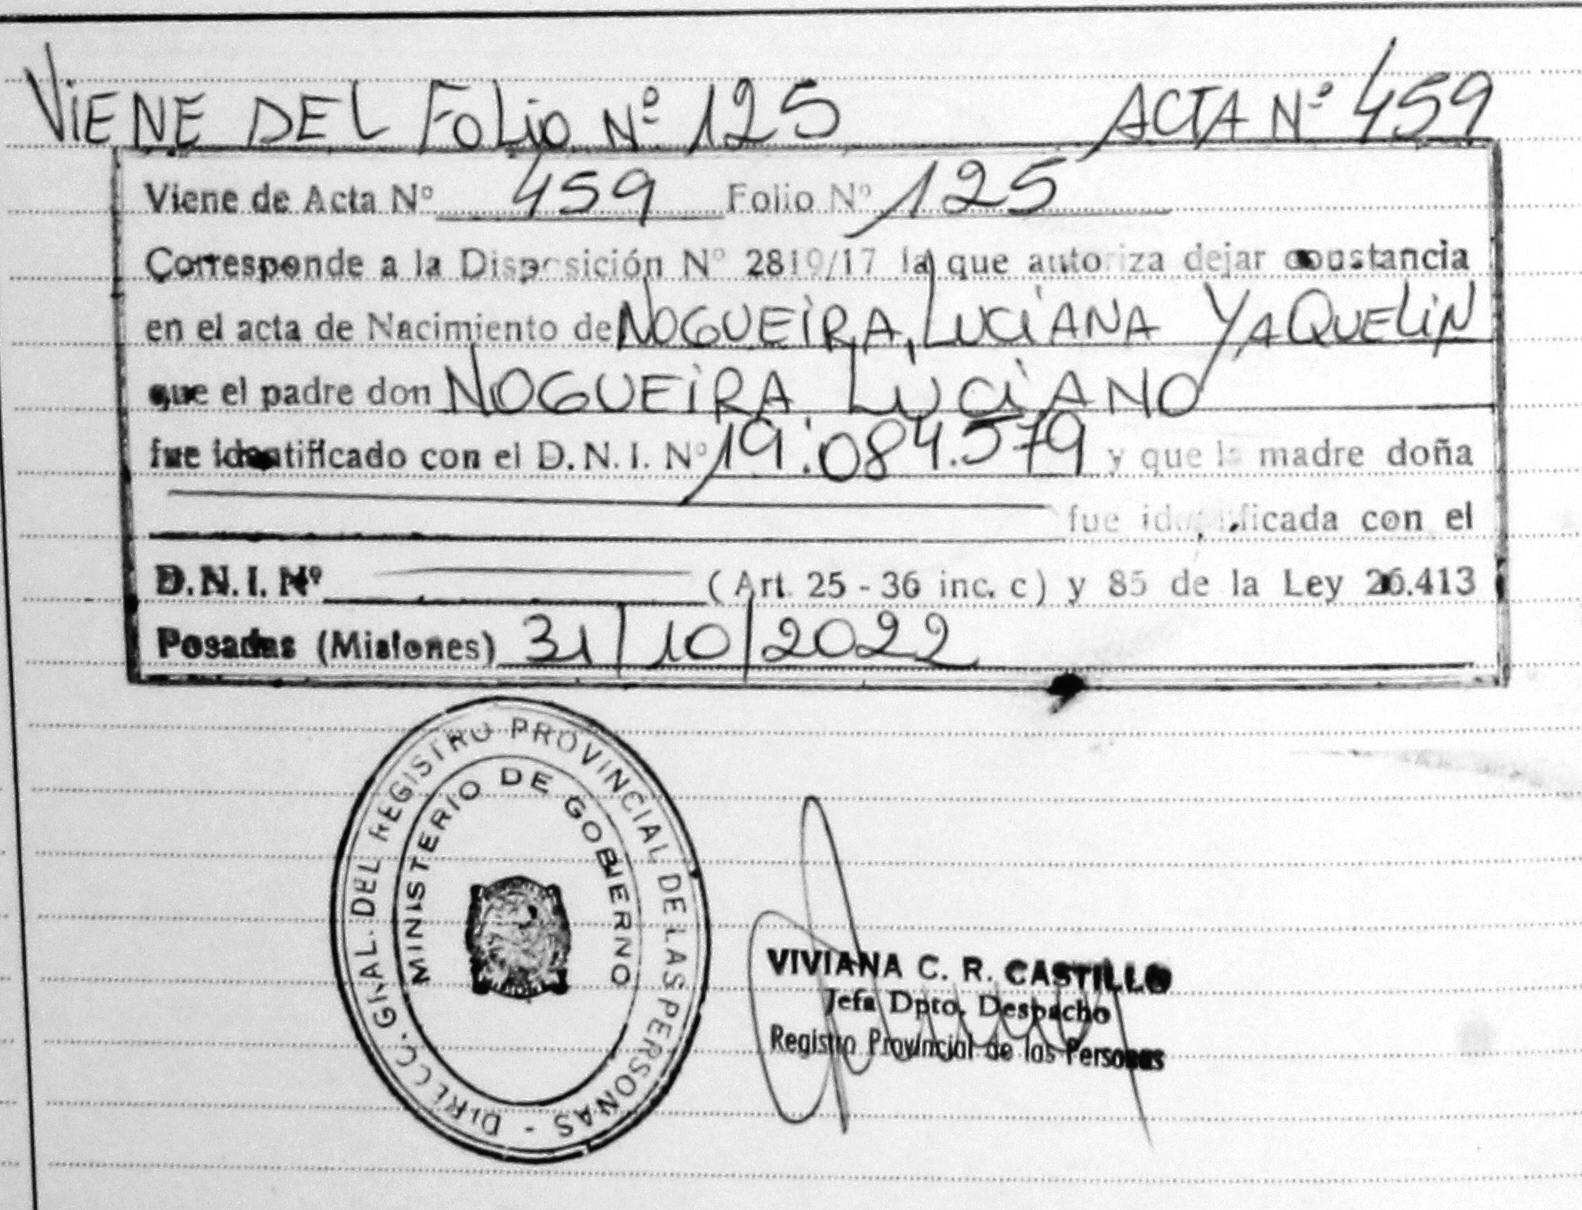 VIENE DEL FOLIO Nº 125 ACTA Nº 459
Viene de Acta Nº 459 Folio Nº 125
Corresponde a la Disposición Nº 2819/17 la que autoriza dejar constancia
en el acta de Nacimiento de NOGUEIRA, LUCIANA YAQUELIN
que el padre don NOGUEIRA, LUCIANO
fue identificado con el D.N.I. Nº 19.084.579 y que la madre doña
fue identificada con el
D.N.I. Nº (Art. 25 - 36 inc. c) y 85 de la Ley 26.413
Posadas (Misiones) 31/10/2022
DIRECC. GRAL. DEL REGISTRO PROVINCIAL DE LAS PERSONAS -
MINISTERIO DE GOBIERNO
VIVIANA C. R. CASTILLO
Jefa Dpto. Despacho
Registro Provincial de las Personas